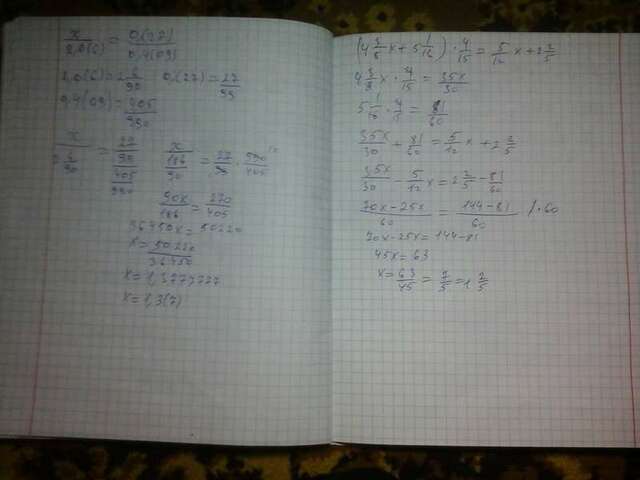 x/2,0(6) = 0,(27)/0,4(09)
2,0(6)=2 6/90 0,(27)=27/99
0,4(09)=405/990
x/(2 6/90) = (27/99)/(405/990) x/(186/90) = 27/99 · 990/405
90x/186 = 270/405
36450x = 50220
x = 50220/36450
x = 1,3777777
x = 1,3(7)
(4 3/8 x + 5 1/16) · 4/15 = 5/12 x + 2 2/5
4 3/8 x · 4/15 = 35x/30
5 1/16 · 4/15 = 81/60
35x/30 + 81/60 = 5/12 x + 2 2/5
35x/30 - 5/12 x = 2 2/5 - 81/60
(70x-25x)/60 = (144-81)/60 /·60
70x-25x = 144-81
45x = 63
x = 63/45 = 7/5 = 1 2/5